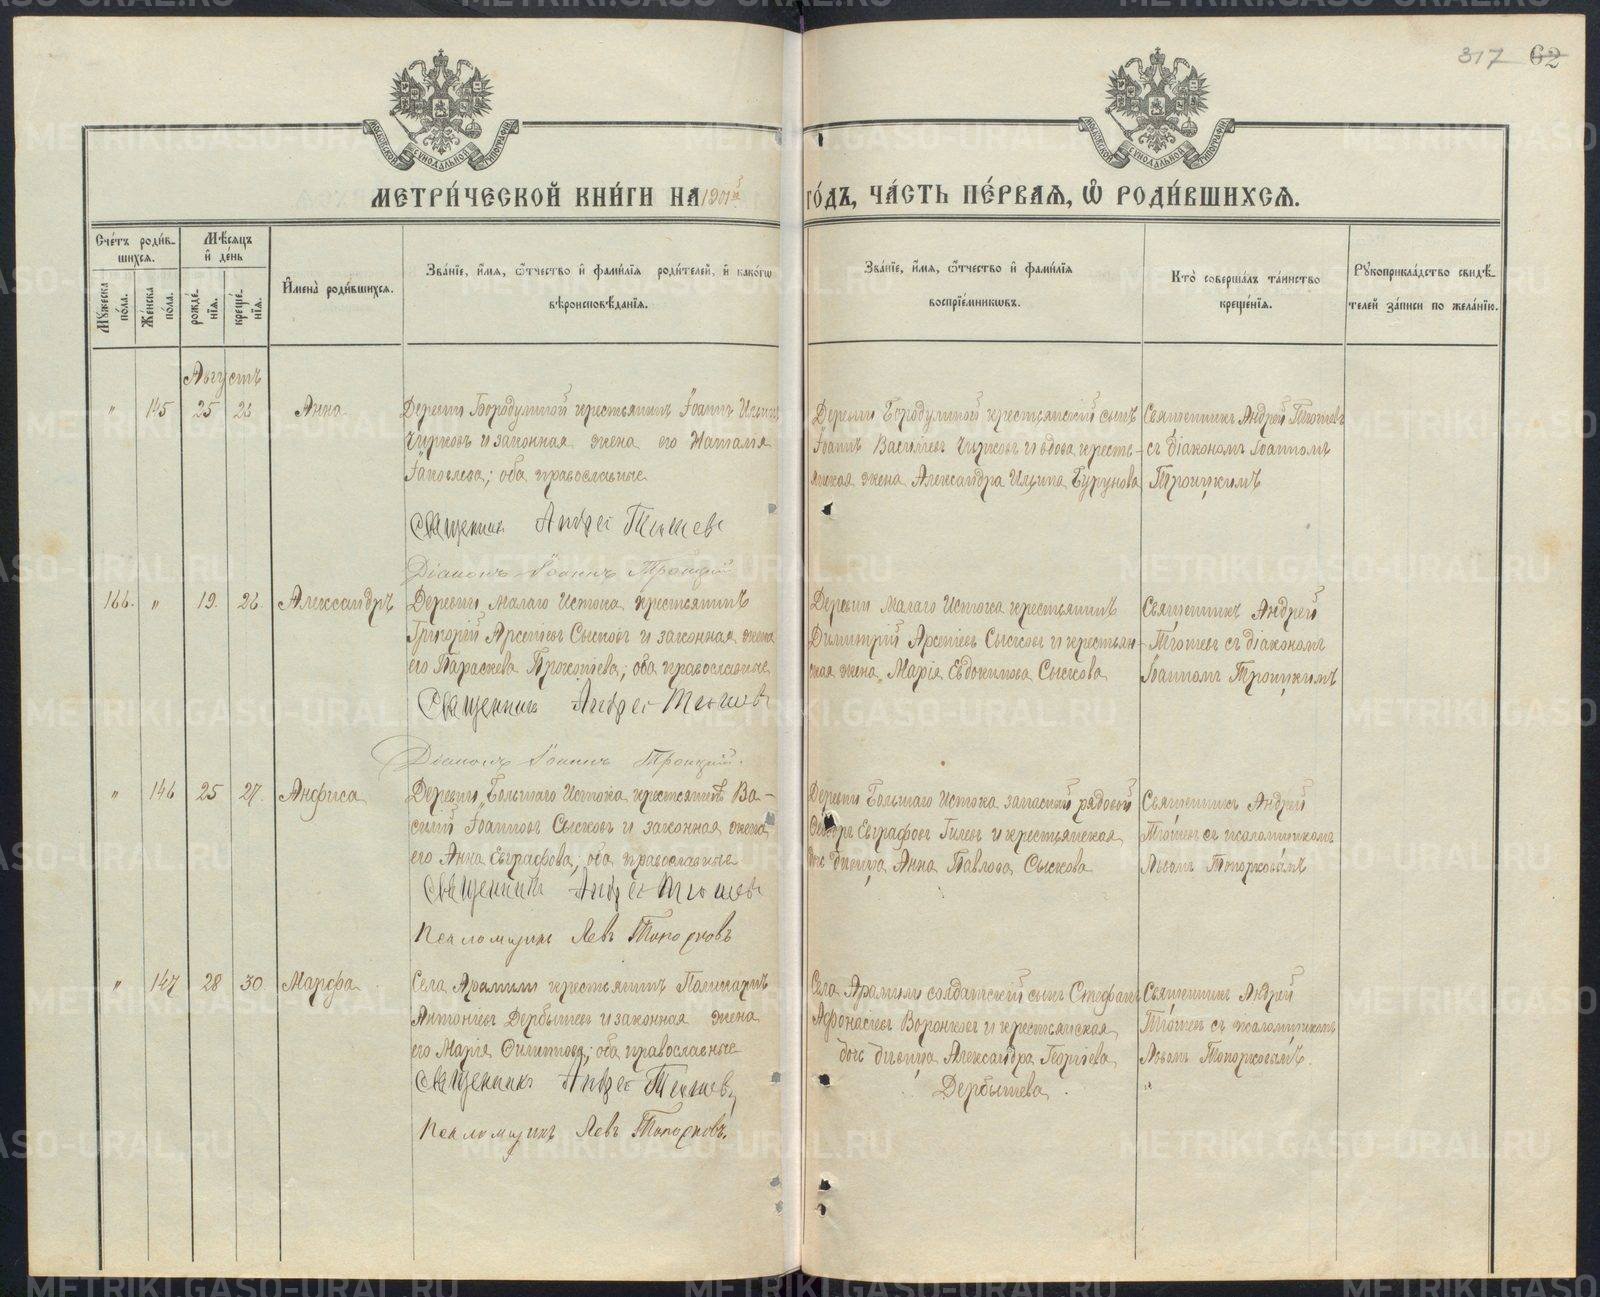 317 62
МОСКОВСКОЙ СѴНОДАЛЬНОЙ ТИПОГРАФІИ
МОСКОВСКОЙ СѴНОДАЛЬНОЙ ТИПОГРАФІИ
МЕТРИ́ЧЕСКОЙ КНИ́ГИ НА 1901й ГО́ДЪ, ЧА́СТЬ ПЕ́РВАѦ, Ѡ҆ РОДИ́ВШИХСѦ.
Сче́тъ роди́в-
шихсѧ.
Мꙋ́жеска
по́ла.
Же́нска
по́ла.
Мѣ́сѧцъ
и҆ де́нь
рожде́-
нїѧ.
креще́-
нїѧ.
И҆мена̀ роди́вшихсѧ.
Зва́нїе, и҆́мѧ, ѻ҆́тчество и҆ фами́лїѧ роди́телей, и҆ како́гѡ
вѣроисповѣ́данїѧ.
Зва́нїе, и҆́мѧ, ѻ҆́тчество и҆ фами́лїѧ
воспрїе́мникѡвъ.
Кто̀ соверша́лъ та́инство
креще́нїѧ.
Рꙋкоприкла́дство свидѣ́-
телей за́писи по жела́нїю.
Августъ
" 145 25 26 Анна
Деревни Бородулиной крестьянинъ Іоаннъ Ильинъ
Чирковъ и законная жена его Наталія
Іаковлева; оба православные
Священникъ Андрей Тюшевъ
Діаконъ Іоаннъ Троицкій
Деревни Бородулиной крестьянскій сынъ
Іоаннъ Василіевъ Чирковъ и вдова кресть-
янская жена Александра Ильина Бурунова
Священникъ Андрей Тюшевъ
съ діакономъ Іоанномъ
Троицкимъ
166. " 19. 26. Александръ
Деревни Малаго Истока крестьянинъ
Григорій Арсеніевъ Сысковъ и законная жена
его Параскева Прокопіева; оба православные
Священникъ Андрей Тюшевъ
Діаконъ Іоаннъ Троицкій.
Деревни Малаго Истока крестьянинъ
Димитрій Арсеніевъ Сысковъ и крестьян-
ская жена Марія Евдокимова Сыскова
Священникъ Андрей
Тюшевъ съ діакономъ
Іоанномъ Троицкимъ
" 146 25 27. Анфиса
Деревни Большаго Истока крестьянинъ Ва-
силій Іоанновъ Сысковъ и законная жена
его Анна Евграфова; оба православные
Священникъ Андрей Тюшевъ
Псаломщикъ Левъ Топорковъ
Деревни Большаго Истока запасный рядовой
Евграфовъ Гилевъ и крестьянская
дочь дѣвица Анна Павлова Сыскова
Священникъ Андрей
Тюшевъ съ псаломщикомъ
Львомъ Топорковымъ
" 147 28 30 Марфа
Села Арамили крестьянинъ Поликарпъ
Антоніевъ Дербышевъ и законная жена
его Марія Филиппова; оба православные
Священникъ Андрей Тюшевъ
Псаломщикъ Левъ Топорковъ.
Села Арамили солдатскій сынъ Стефанъ
Афонасіевъ Воронковъ и крестьянская
дочь дѣвица Александра Георгіева
Дербышева.
Священникъ Андрей
Тюшевъ съ псаломщикомъ
Львомъ Топорковымъ.
METRIKI.GASO-URAL.RU